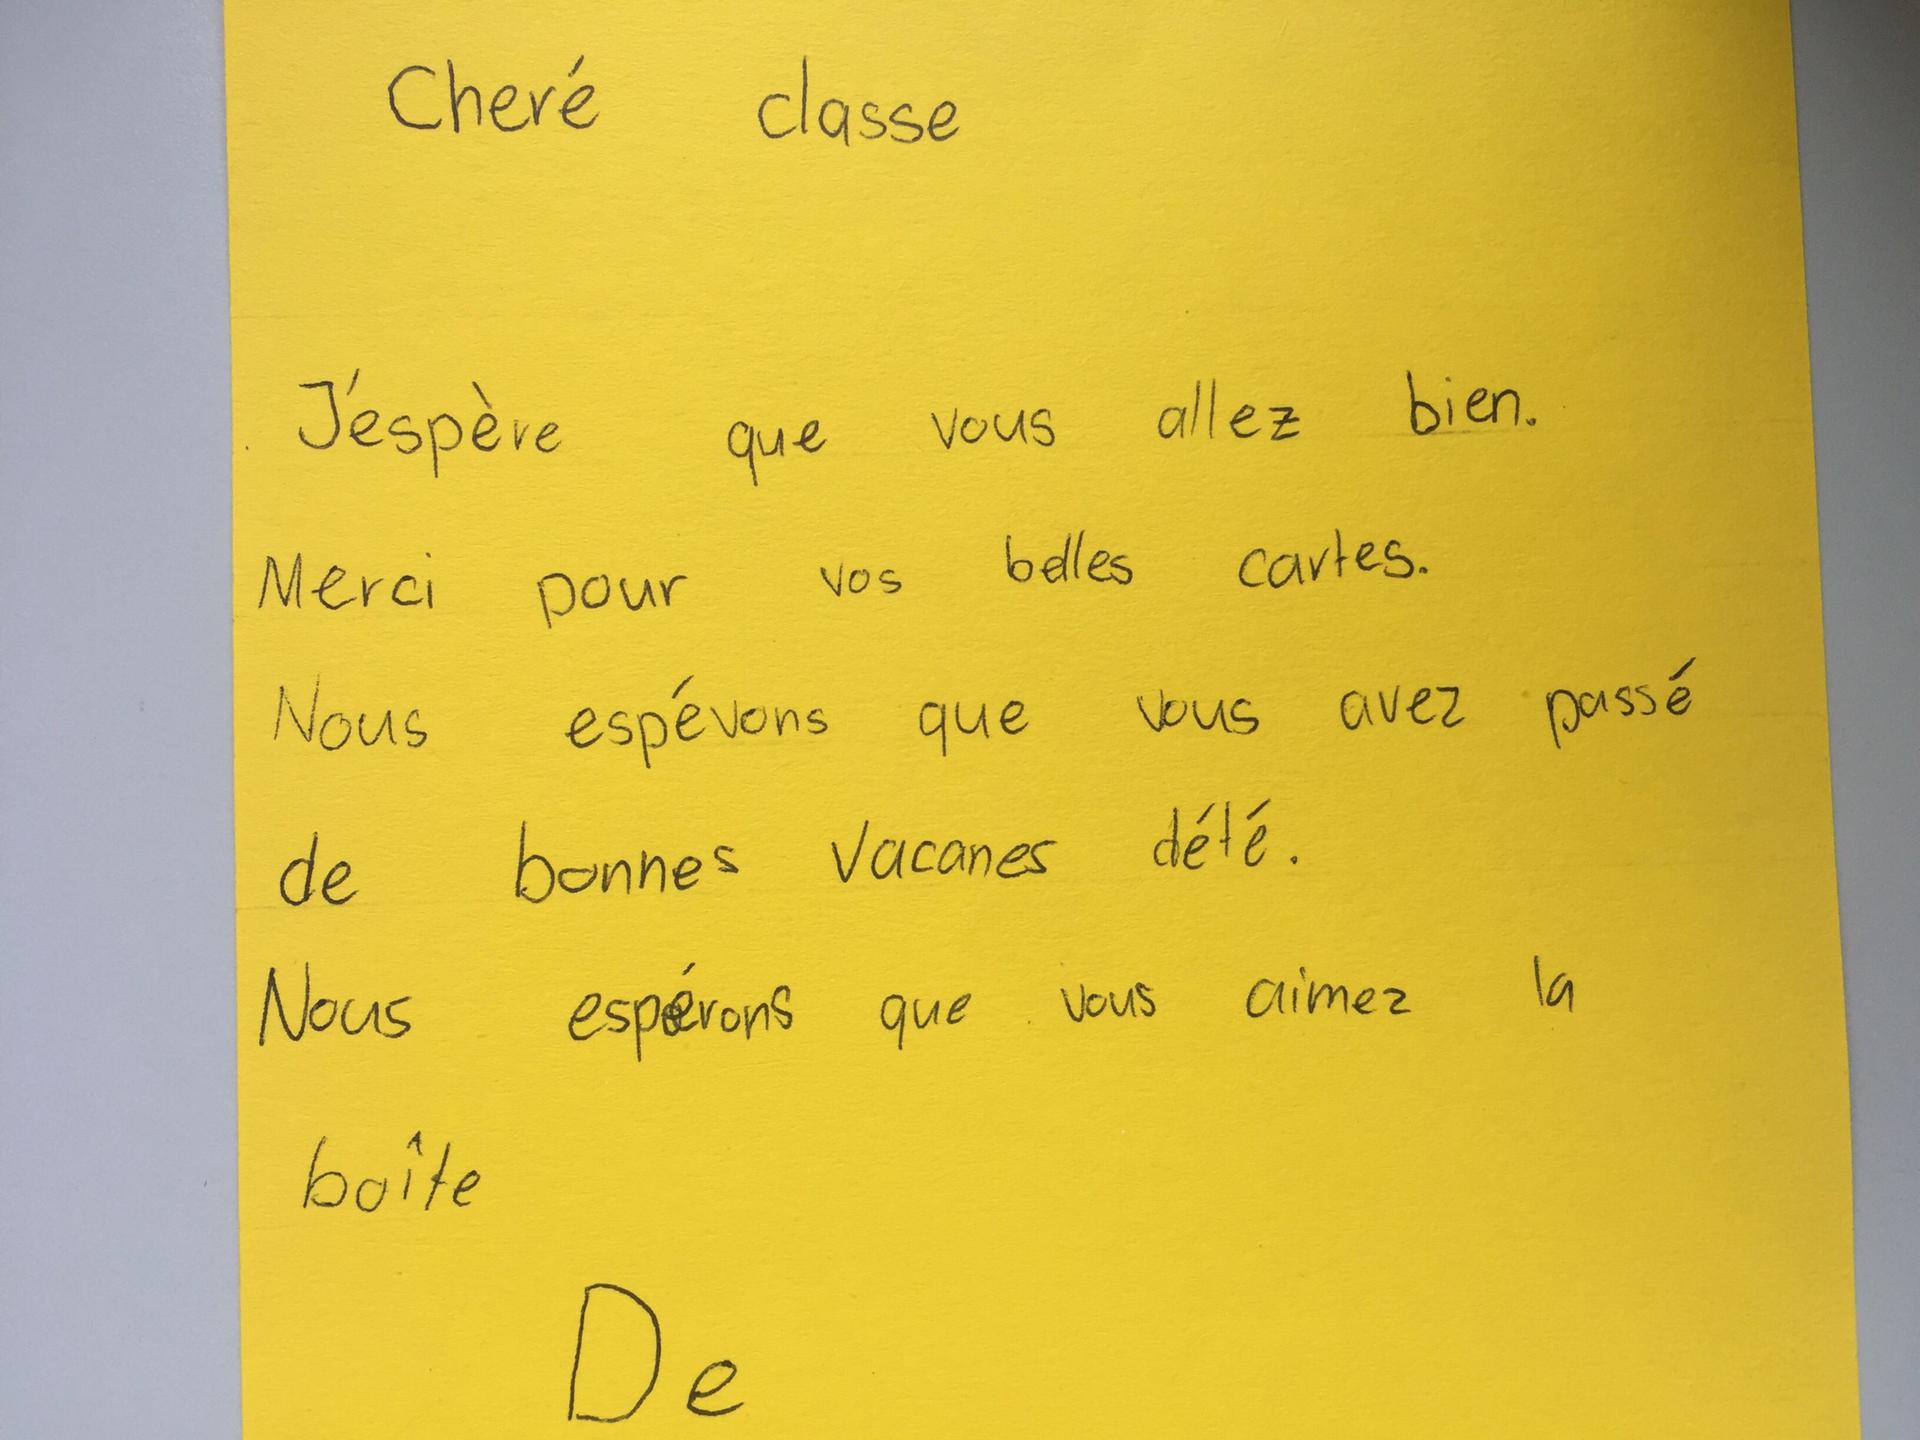 Cheré classe
J'éspère que vous allez bien.
Merci pour vos belles cartes.
Nous espévons que vous avez passé
de bonnes vacanes dété.
Nous espérons que vous aimez la
boîte
De